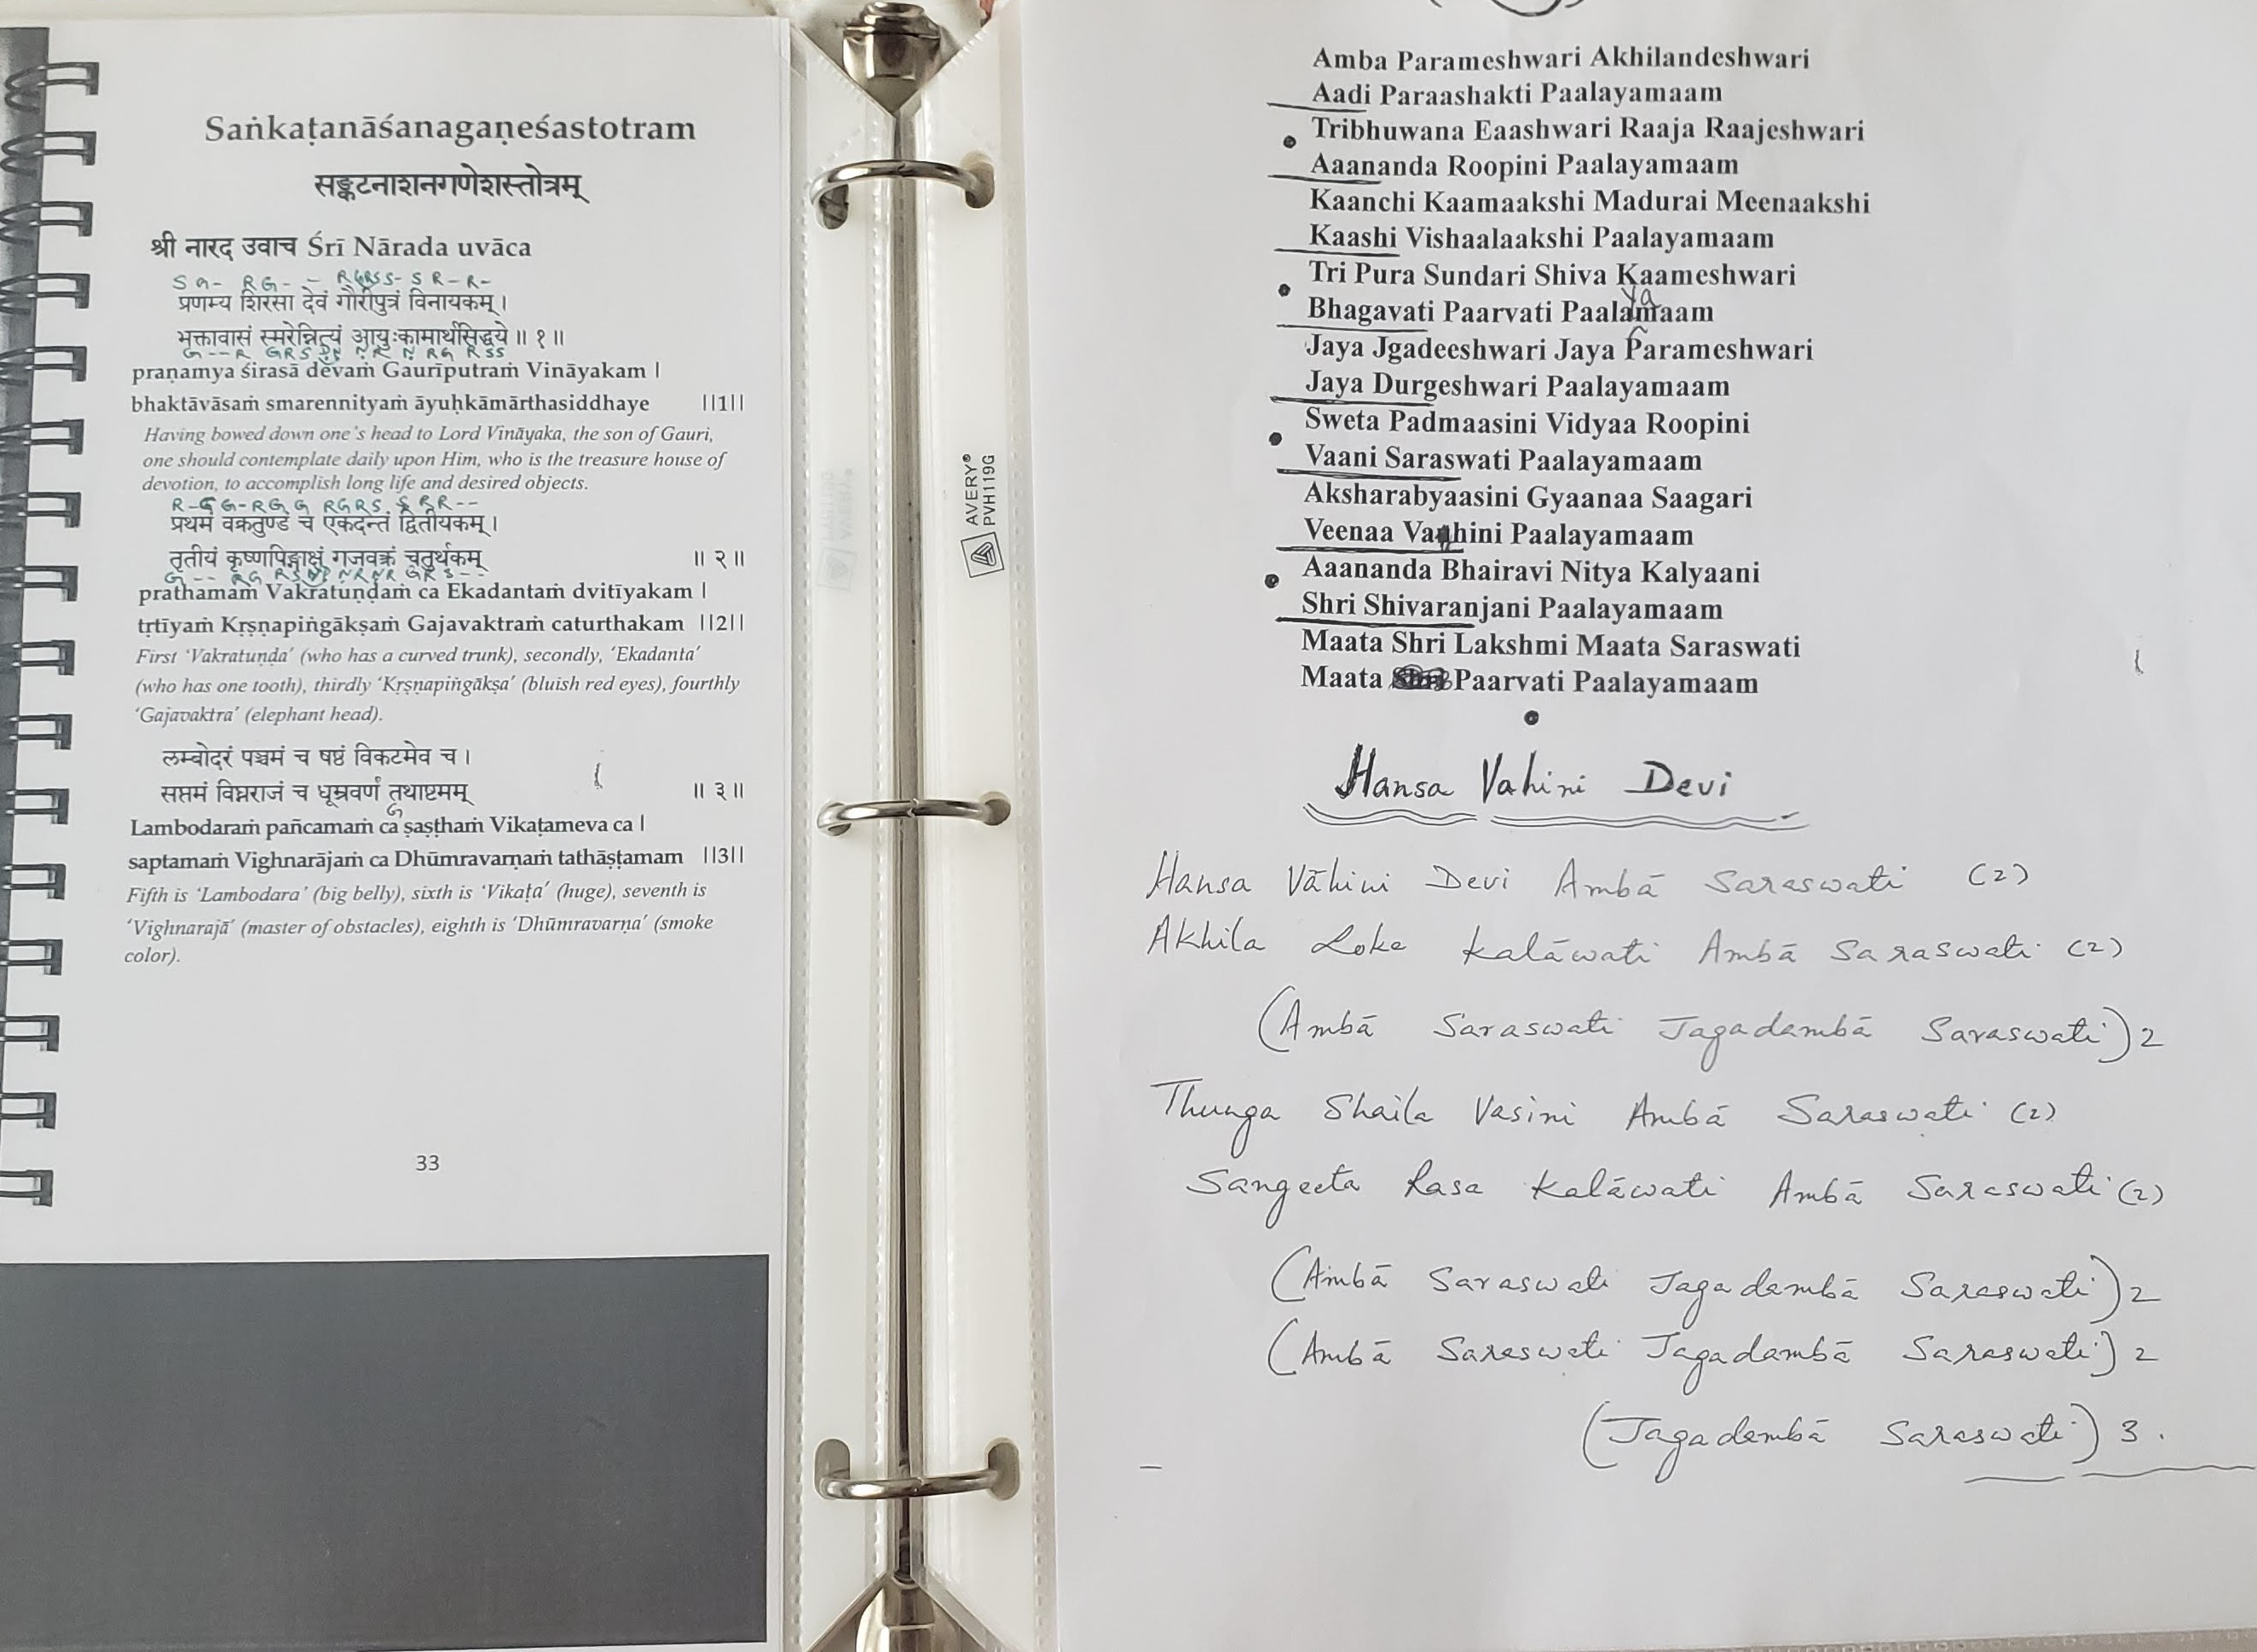 Saṅkaṭanāśanagaṇeśastotram
सङ्कटनाशनगणेशस्तोत्रम्
श्री नारद उवाच Śrī Nārada uvāca
S G- RG- - RGRSS- S R-R-
प्रणम्य शिरसा देवं गौरीपुत्रं विनायकम् ।
भक्तावासं स्मरेन्नित्यं आयुःकामार्थसिद्धये ॥ १ ॥
praṇamya śirasā devaṁ Gaurīputraṁ Vināyakam |
bhaktāvāsaṁ smarennityaṁ āyuḥkāmārthasiddhaye ||1||
Having bowed down one's head to Lord Vināyaka, the son of Gauri,
one should contemplate daily upon Him, who is the treasure house of
devotion, to accomplish long life and desired objects.
R-G G-RG G RGRS S R R--
प्रथमं वक्रतुण्डं च एकदन्तं द्वितीयकम् ।
तृतीयं कृष्णपिङ्गाक्षं गजवक्त्रं चतुर्थकम् ॥ २ ॥
prathamaṁ Vakratuṇḍaṁ ca Ekadantaṁ dvitīyakam |
tṛtīyaṁ Kṛṣṇapiṅgākṣaṁ Gajavaktraṁ caturthakam ||2||
First 'Vakratuṇḍa' (who has a curved trunk), secondly, 'Ekadanta'
(who has one tooth), thirdly 'Kṛṣṇapiṅgākṣa' (bluish red eyes), fourthly
'Gajavaktra' (elephant head).
लम्बोदरं पञ्चमं च षष्ठं विकटमेव च ।
सप्तमं विघ्नराजं च धूम्रवर्णं तथाष्टमम् ॥ ३ ॥
G
Lambodaraṁ pañcamaṁ ca ṣaṣṭhaṁ Vikaṭameva ca |
saptamaṁ Vighnarājaṁ ca Dhūmravarṇaṁ tathāṣṭamam ||3||
Fifth is 'Lambodara' (big belly), sixth is 'Vikaṭa' (huge), seventh is
'Vighnarajā' (master of obstacles), eighth is 'Dhūmravarṇa' (smoke
color).
33
AVERY®
PVH119G
Amba Parameshwari Akhilandeshwari
Aadi Paraashakti Paalayamaam
Tribhuwana Eaashwari Raaja Raajeshwari
Aaananda Roopini Paalayamaam
Kaanchi Kaamaakshi Madurai Meenaakshi
Kaashi Vishaalaakshi Paalayamaam
Tri Pura Sundari Shiva Kaameshwari
ya
Bhagavati Paarvati Paalamaam
Jaya Jgadeeshwari Jaya Parameshwari
Jaya Durgeshwari Paalayamaam
Sweta Padmaasini Vidyaa Roopini
Vaani Saraswati Paalayamaam
Aksharabyaasini Gyaanaa Saagari
Veenaa Vahini Paalayamaam
Aaananda Bhairavi Nitya Kalyaani
Shri Shivaranjani Paalayamaam
Maata Shri Lakshmi Maata Saraswati
Maata Paarvati Paalayamaam
Hansa Vahini Devi
Hansa Vāhini Devi Ambā Saraswati (2)
Akhila Loka Kalāwati Ambā Saraswati (2)
(Ambā Saraswati Jagadambā Saraswati) 2
Thunga Shaila Vasini Ambā Saraswati (2)
Sangeeta Rasa Kalāwati Ambā Saraswati (2)
(Ambā Saraswati Jagadambā Saraswati) 2
(Ambā Saraswati Jagadambā Saraswati) 2
(Jagadambā Saraswati) 3.